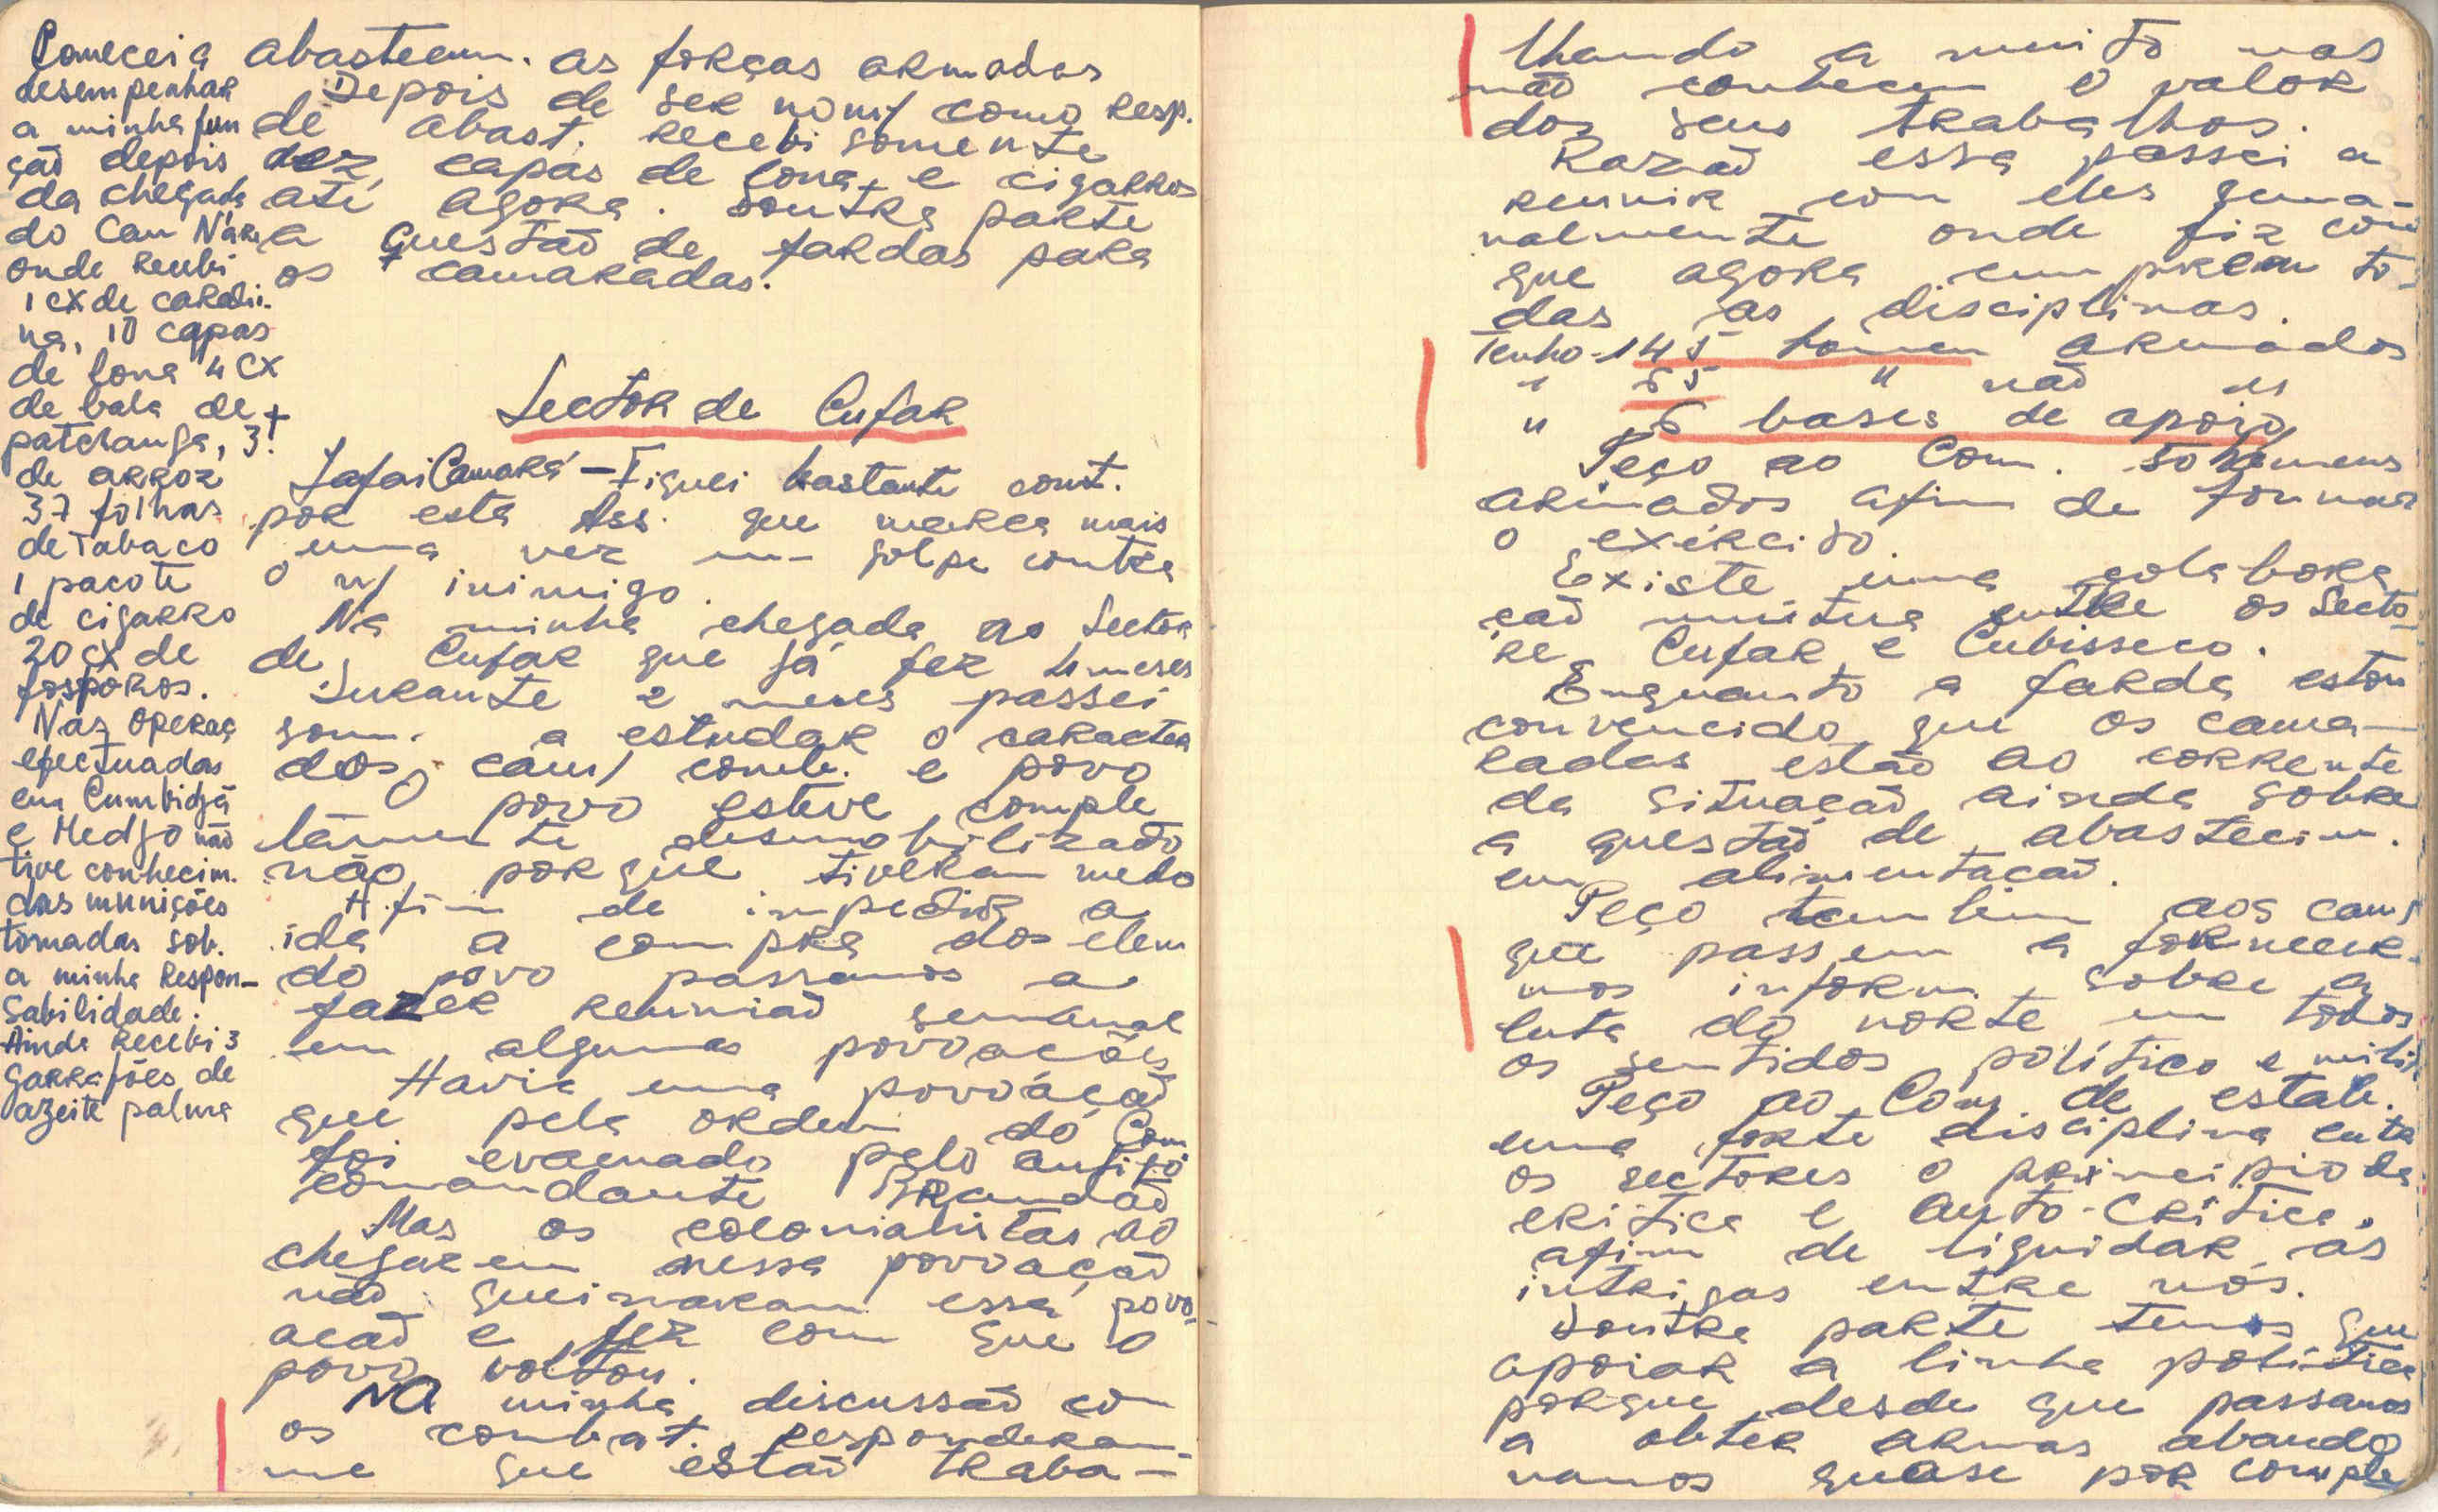 Comecei a
desempenhar
a minha fun
ção depois
da chegada
do Cam Nar
onde recebi
1 cx de
na, 10 capas
de lona 4 cx
de bala de
patchanga, 3 t
de arroz
37 folhas
de Tabaco
1 pacote
de cigarro
20 cx de
fosforos.
Nas operaç
efectuadas
em Cumbidjã
e Medjo não
tive conhecim.
das munições
tomadas sob.
a minha respon-
sabilidade.
Ainda recebi 3
garrafões de
azeite palma
abastecim. as forças armadas
Depois de ser nom/ como resp.
de abast. recebi somente
dez capas de lona e cigarros
até agora. Doutra parte
a questão de fardas para
os camaradas.
Sector de Cufar
Lafai Camará - Fiquei bastante cont.
por esta Ass. que marca mais
uma vez um golpe contra
o n/ inimigo.
Na minha chegada ao Sector
de Cufar que já fez 4 meses
Durante 2 meses passei
som. a estudar o caracter
dos cam/ comb. e povo
O povo esteve comple
támente desmobilizado
não porque tiveram medo
A fim de impedir a
ida a compra dos elem
do povo passamos a
fazer reunião semanal
em algumas povoações
Havia uma povoação
que pela ordem do Com
foi evacuado pelo antigo
comandante Brandão
Mas os colonialistas ao
chegarem nessa povoação
não queimaram essa povo-
ação e fez com que o
povo voltou.
NA minha discussão com
os combat. responderam-
me que estão traba-
lhando a muito mas
não conhecem o valor
dos seus trabalhos.
Razão essa passei a
reunir com eles sema-
nalmente onde fiz com
que agora cumpram to-
das as disciplinas.
Tenho 145 homen armados
" 65 " não "
" 6 bases de apoio
Peço ao Com. 50 homens
armados afim de formar
o exército.
Existe uma colabora
ção mútua entre os Secto-
re Cufar e Cubisseco.
Enquanto a farda estou
convencido que os cama-
radas estão ao corrente
da situação ainda sobre
a questão de abastecim.
em alimentação.
Peço também aos cam/
que passem a fornecer-
nos inform. sobre a
luta do norte em todos
os sentidos político e milit
Peço ao Com. de estab.
uma forte disciplina entre
os sectores o principio da
critica e auto-critica.
afim de liquidar as
intrigas entre nós.
Doutra parte temos que
apoiar a linha politica
porque desde que passamos
a obter armas abando
namos quase por comple